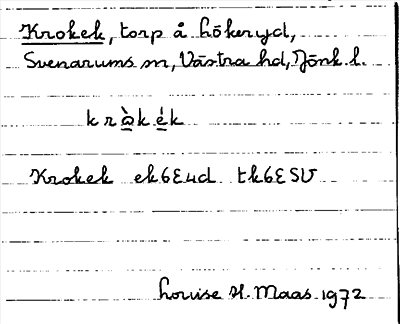 Krokek, torp å Hökeryd,
Svenarums sn, Västra hd, Jönk. l.
kràkék
Krokek ek6Eud tk6ESV
Louise H. Maas 1972